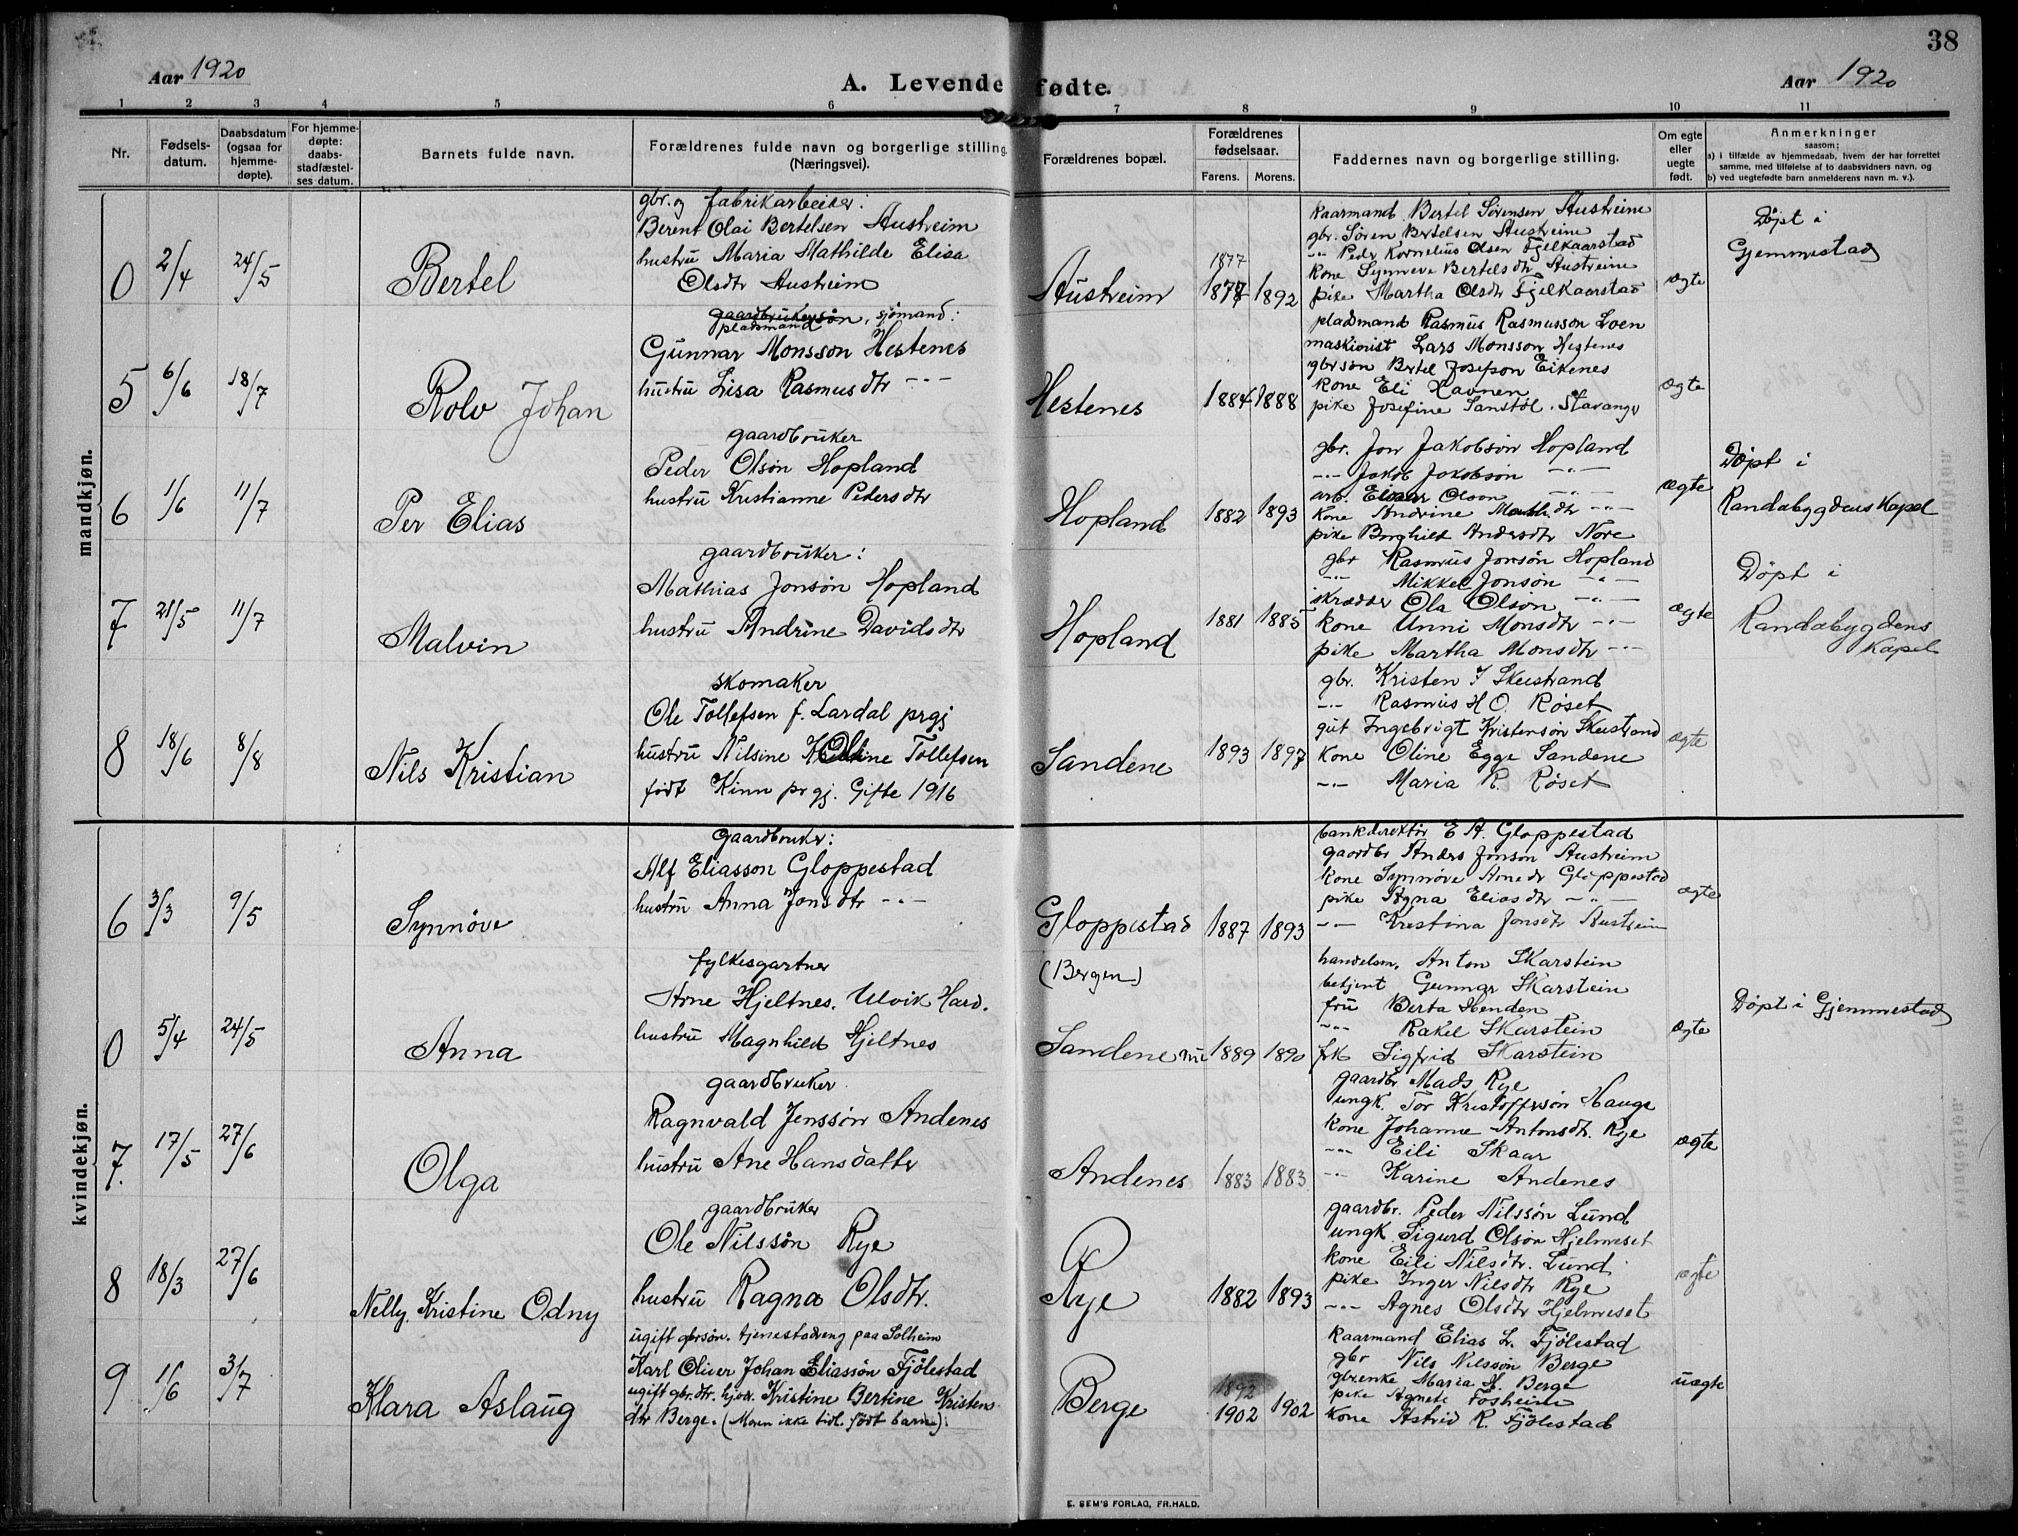 38
Aar 1920
A. Levende fødte.
Aar 1920
1 2 3 4 5 6 7 8 9 10 11
Nr.
Fødsels-
datum.
Daabsdatum
(ogsaa for
hjemme-
døpte).
For hjemme-
døpte:
daabs-
stadfæstel-
ses datum.
Barnets fulde navn.
Forældrenes fulde navn og borgerlige stilling.
(Næringsvei).
Forældrenes bopæl.
Forældrenes
fødselsaar.
Farens. Morens.
Faddernes navn og borgerlige stilling.
Om egte
eller
uegte
født.
Anmerkninger
saasom:
a) i tilfælde av hjemmedaab, hvem der har forrettet
samme, med tilføielse af to daabsvidners navn, og
b) ved uegtefødte barn anmelderens navn m. v.).
mandkjøn.
0 2/4 24/5 Bertel
gbr. og fabrikarbeider:
Berent Olai Bertelsen Austreim
hustru Maria Mathilde Elisa
Olsdtr Austreim
Austreim
1877
1877 1892
Kaarmand Bertel Sørensen Austreim
gbr. Søren Bertelsen Austreim
-"- Peder Kornelius Olsen Fjelkaarstad
kone Synneve Bertelsdtr Austreim
pike Martha Olsdtr Fjelkaarstad
ægte
Döpt i
Gjemmestad
5 6/6 18/7 Rolv Johan
gaardbrukersøn, sjömand:
pladsmand
Gunnar Monsson Hestenes
hustru Lisa Rasmusdtr -"-
Hestenes
1884 1888
pladsmand Rasmus Rasmusson Loen
maskinist Lars Monsson Hestenes
gbrsøn Bertel Josefson Eikenes
kone Eli Ravnen
pike Josefine Sandstøl. Stavanger
ægte
6 1/6 11/7 Per Elias
gaardbruker
Peder Olsøn Hopland
hustru Kristianne Pedersdtr
Hopland
1882 1893
gbr. Jon Jakobsøn Hopland
-"- Jakob Jakobsøn -"-
arb. Einar Olson -"-
kone Andrine Math.dtr -"-
pike Borghild Andersdtr Nore
ægte
Döpt i
Randabygdens Kapel
7 21/5 11/7 Malvin
gaardbruker:
Mathias Jonsøn Hopland
hustru Andrine Davidsdtr
Hopland
1881 1885
gbr Rasmus Jonsøn Hopland
-"- Mikkel Jonsøn -"-
skrædder Ola Olsøn -"-
kone Unni Monsdtr -"-
pike Martha Monsdtr -"-
ægte
Döpt i
Randabygdens
Kapel
8 18/6 8/8 Nils Kristian
skomaker
Ole Tollefsen f. Lardal prgj
hustru Nilsine Tollefsen
født Kinn prgj. Gifte 1916
Sandene
1893 1897
gbr. Kristen I Skeistrand
-"- Rasmus H O. Røset
gut Ingebrigt Kristensøn Skeistrand
kone Oline Egge Sandene
-"- Maria R. Røset
ægte
kvindekjøn.
6 3/3 9/5 Synnøve
Gaardbruker:
Alf Eliasson Gloppestad
hustru Anna Jonsdtr -"-
Gloppestad
1887 1893
bankdirektør E A. Gloppestad
gaardbr Anders Jonsøn Austreim
kone Synnøve Gloppestad
pike Agna Eliasdtr -"-
-"- Kristina Jonsdtr Austreim
ægte
0 5/4 24/5 Anna
fylkesgartner
Arne Hjeltnes. Ulvik Hard.
hustru Magnhild Hjeltnes
(Bergen)
Sandene nu
1889 1890
handelsm. Anton Skarstein
betjent Gunnar Skarstein
fru Berta Henden
-"- Rakel Skarstein
frk Sigfrid Skarstein
ægte
Döpt i Gjemmestad
7. 17/5 27/6 Olga
gaardbruker
Ragnvald Jenssön Andenes
hustru Ane Hansdatter
Andenes
1883 1883
gaardbr. Mads Rye
ungk. Tor Kristoffersøn Hauge
kone Johanne Antonsdtr. Rye
-"- Eili Skaar
-"- Karine Andenes
ægte
8 18/3 27/6 Nelly Kristine Odny
gaardbruker
Ole Nilssön Rye
hustru Ragna Olsdtr.
Rye
1882 1893
gaardbr. Peder Nilssön Lund
ungk Sigurd Olsøn Hjelmeset
kone Eili Nilsdtr. Lund
pike Inger Nilsdtr Rye
-"- Agnes Olsdtr Hjelmeset
ægte
9 1/6 3/7 Klara Aslaug
ugift gbrsøn. tjenestedreng paa Solheim
Karl Oliver Johan Eliassön Fjölestad
ugift gbr.dtr. hjv. Kristine Bertine Kristens
dtr Berge. (Moren ikke tidl. født barn):
Berge
1892
1902 1902
Kaarmand Elias L. Fjölestad
gbr Nils Nilssön Berge
gbr.enke Maria H. Berge
pike Agnete Fosheim
kone Astrid R. Fjölestad
uægte
E. SEM'S FORLAG, FR.HALD.